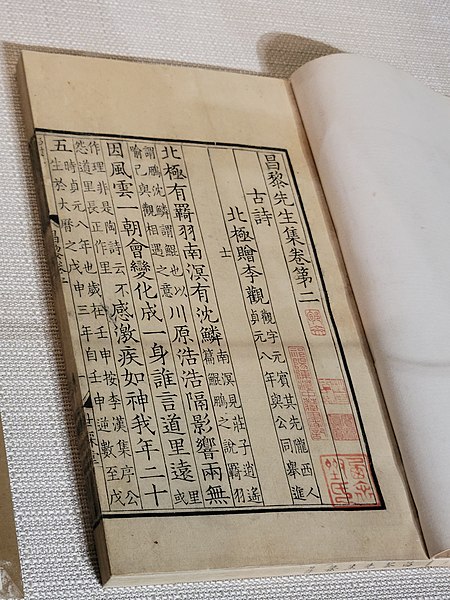 昌黎先生集卷第二
古詩
北極贈李觀
觀字元賓其先隴西人
貞元八年與公同舉進
士
北極有羈羽南溟有沈鱗
南溟見莊子逍遙
篇鯤鵬之說羈羽
謂鵬沈鱗謂鯤也以
喻己與觀相遇之意
川原浩浩隔影響兩無
因風雲一朝會變化成一身誰言道里遠
或
里
作理非是陶詩云不
怨道里長正作里
感激疾如神我年二十
五
時貞元八年也歲在壬申按李漢集序公
生於大曆之戊申三年自壬申逆數至戊